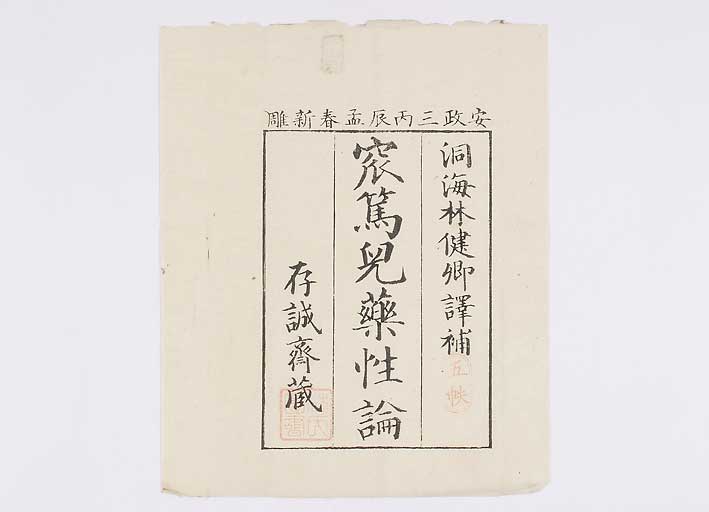 安政三丙辰孟春新雕
洞海林健卿譯補
五帙
窊篤兒藥性論
存誠齋蔵